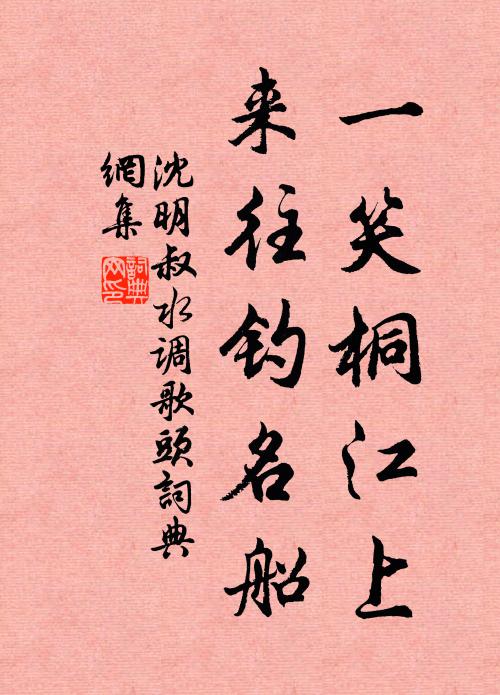 一笑桐江上
来往钓名船
沈明叔水调歌頭詞典
網集
詞典
网印